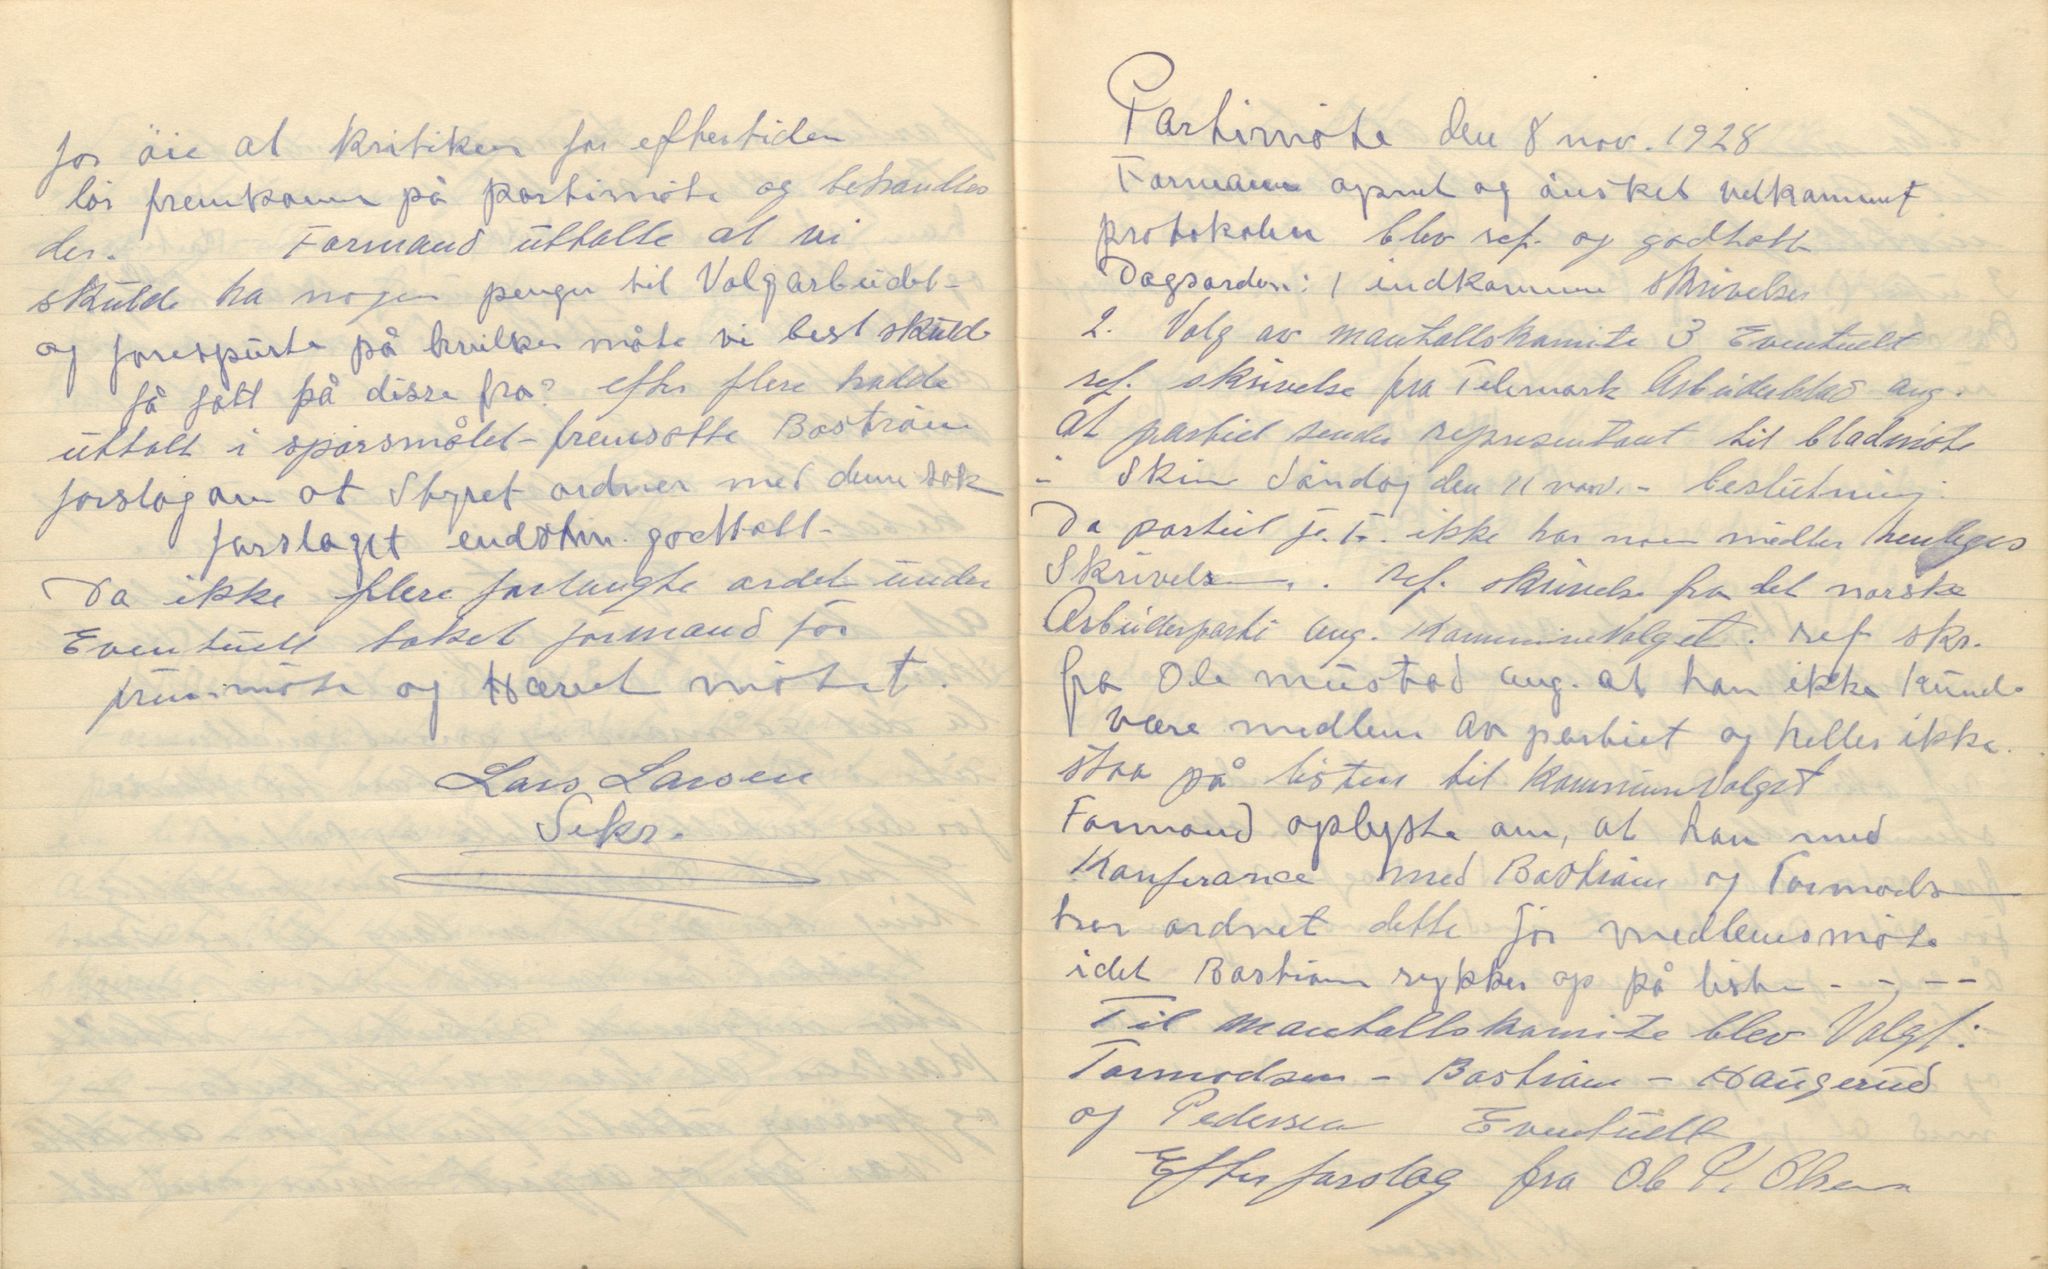 for öie at kritiken for eftertiden
bör fremkomme på partimöte og behandles
der. Formand uttalte at vi
skulde ha nogen penger til Valgarbeidet -
og forespurte på hvilken måte vi best skulde
få fatt på disse fra? efter flere hadde
uttalt i spörsmålet - fremsatte Boström
forslag om at Styret ordner med denne sak
forslaget endstem. godtatt -
Da ikke flere forlangte ordet under
Eventuelt takket formand for
frimöte og Hævet mötet.
Lars Larsen
Sekr.
Partimöte den 8 nov. 1928
Formann opnet og önsket velkommet
protokolen blev ref. og godtatt
Dagsorden: 1 indkomne skrivelser
2. Valg av mantallskomite 3 Eventuelt
ref. skrivelse fra Telemark Arbeiderblad ang.
at partiet sender representant til bladmöte
i Skien Söndag den 11 nov. - beslutning:
Da partiet f.t. ikke har noen midler henlegges
Skrivelsen. ref. skrivelse fra det norske
Arbeiderparti ang. Kommunevalget. ref skr.
fra Ole Mustad ang. at han ikke kunde
være medlem av partiet og heller ikke
staa på listen til kommunevalget
Formand oplyste om, at han med
Konferance med Boström og Tormods-
har ordnet dette för medlemsmöte
idet Boström rykker op på liste - - - -
Til mantallskomite blev Valgt:
Tormodsen - Boström - Haugerud
og Pedersen Eventuelt
Efter forslag fra Ole P. Olsen